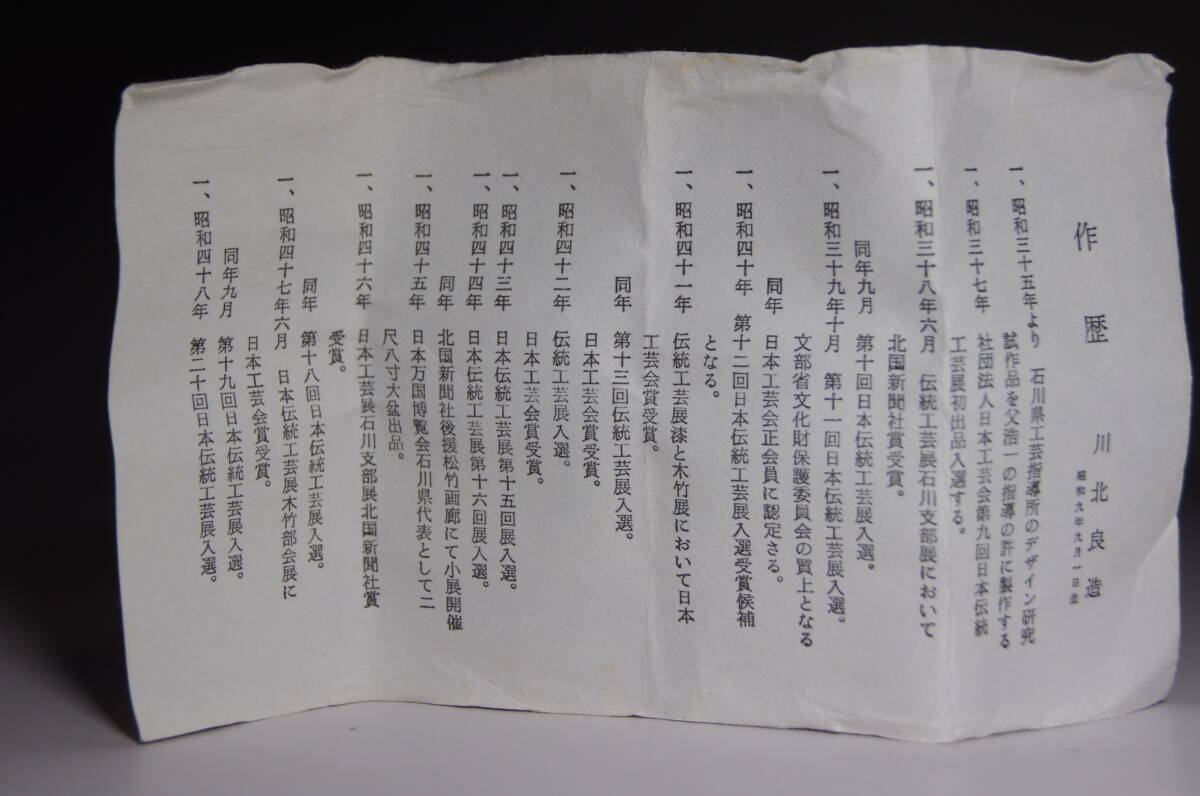 作歴
川北良造
昭和九年九月一日生
一、昭和三十五年より 石川県工芸指導所のデザイン研究
試作品を父浩一の指導の許に製作する
一、昭和三十七年 社団法人日本工芸会第九回日本伝統
工芸展初出品入選する。
一、昭和三十八年六月 伝統工芸展石川支部展において
北国新聞社賞受賞。
同年九月 第十回日本伝統工芸展入選。
一、昭和三十九年十月 第十一回日本伝統工芸展入選。
文部省文化財保護委員会の買上となる
同年 日本工芸会正会員に認定さる。
一、昭和四十年 第十二回日本伝統工芸展入選受賞候補
となる。
一、昭和四十一年 伝統工芸展漆と木竹展において日本
工芸会賞受賞。
同年 第十三回伝統工芸展入選。
日本工芸会賞受賞。
一、昭和四十二年 伝統工芸展入選。
日本工芸会賞受賞。
一、昭和四十三年 日本伝統工芸展第十五回展入選。
一、昭和四十四年 日本伝統工芸展第十六回展入選。
同年 北国新聞社後援松竹画廊にて小展開催
一、昭和四十五年 日本万国博覧会石川県代表として二
尺八寸大盆出品。
一、昭和四十六年 日本工芸展石川支部展北国新聞社賞
受賞。
同年 第十八回日本伝統工芸展入選。
一、昭和四十七年六月 日本伝統工芸展木竹部会展に
日本工芸会賞受賞。
同年九月 第十九回日本伝統工芸展入選。
一、昭和四十八年 第二十回日本伝統工芸展入選。